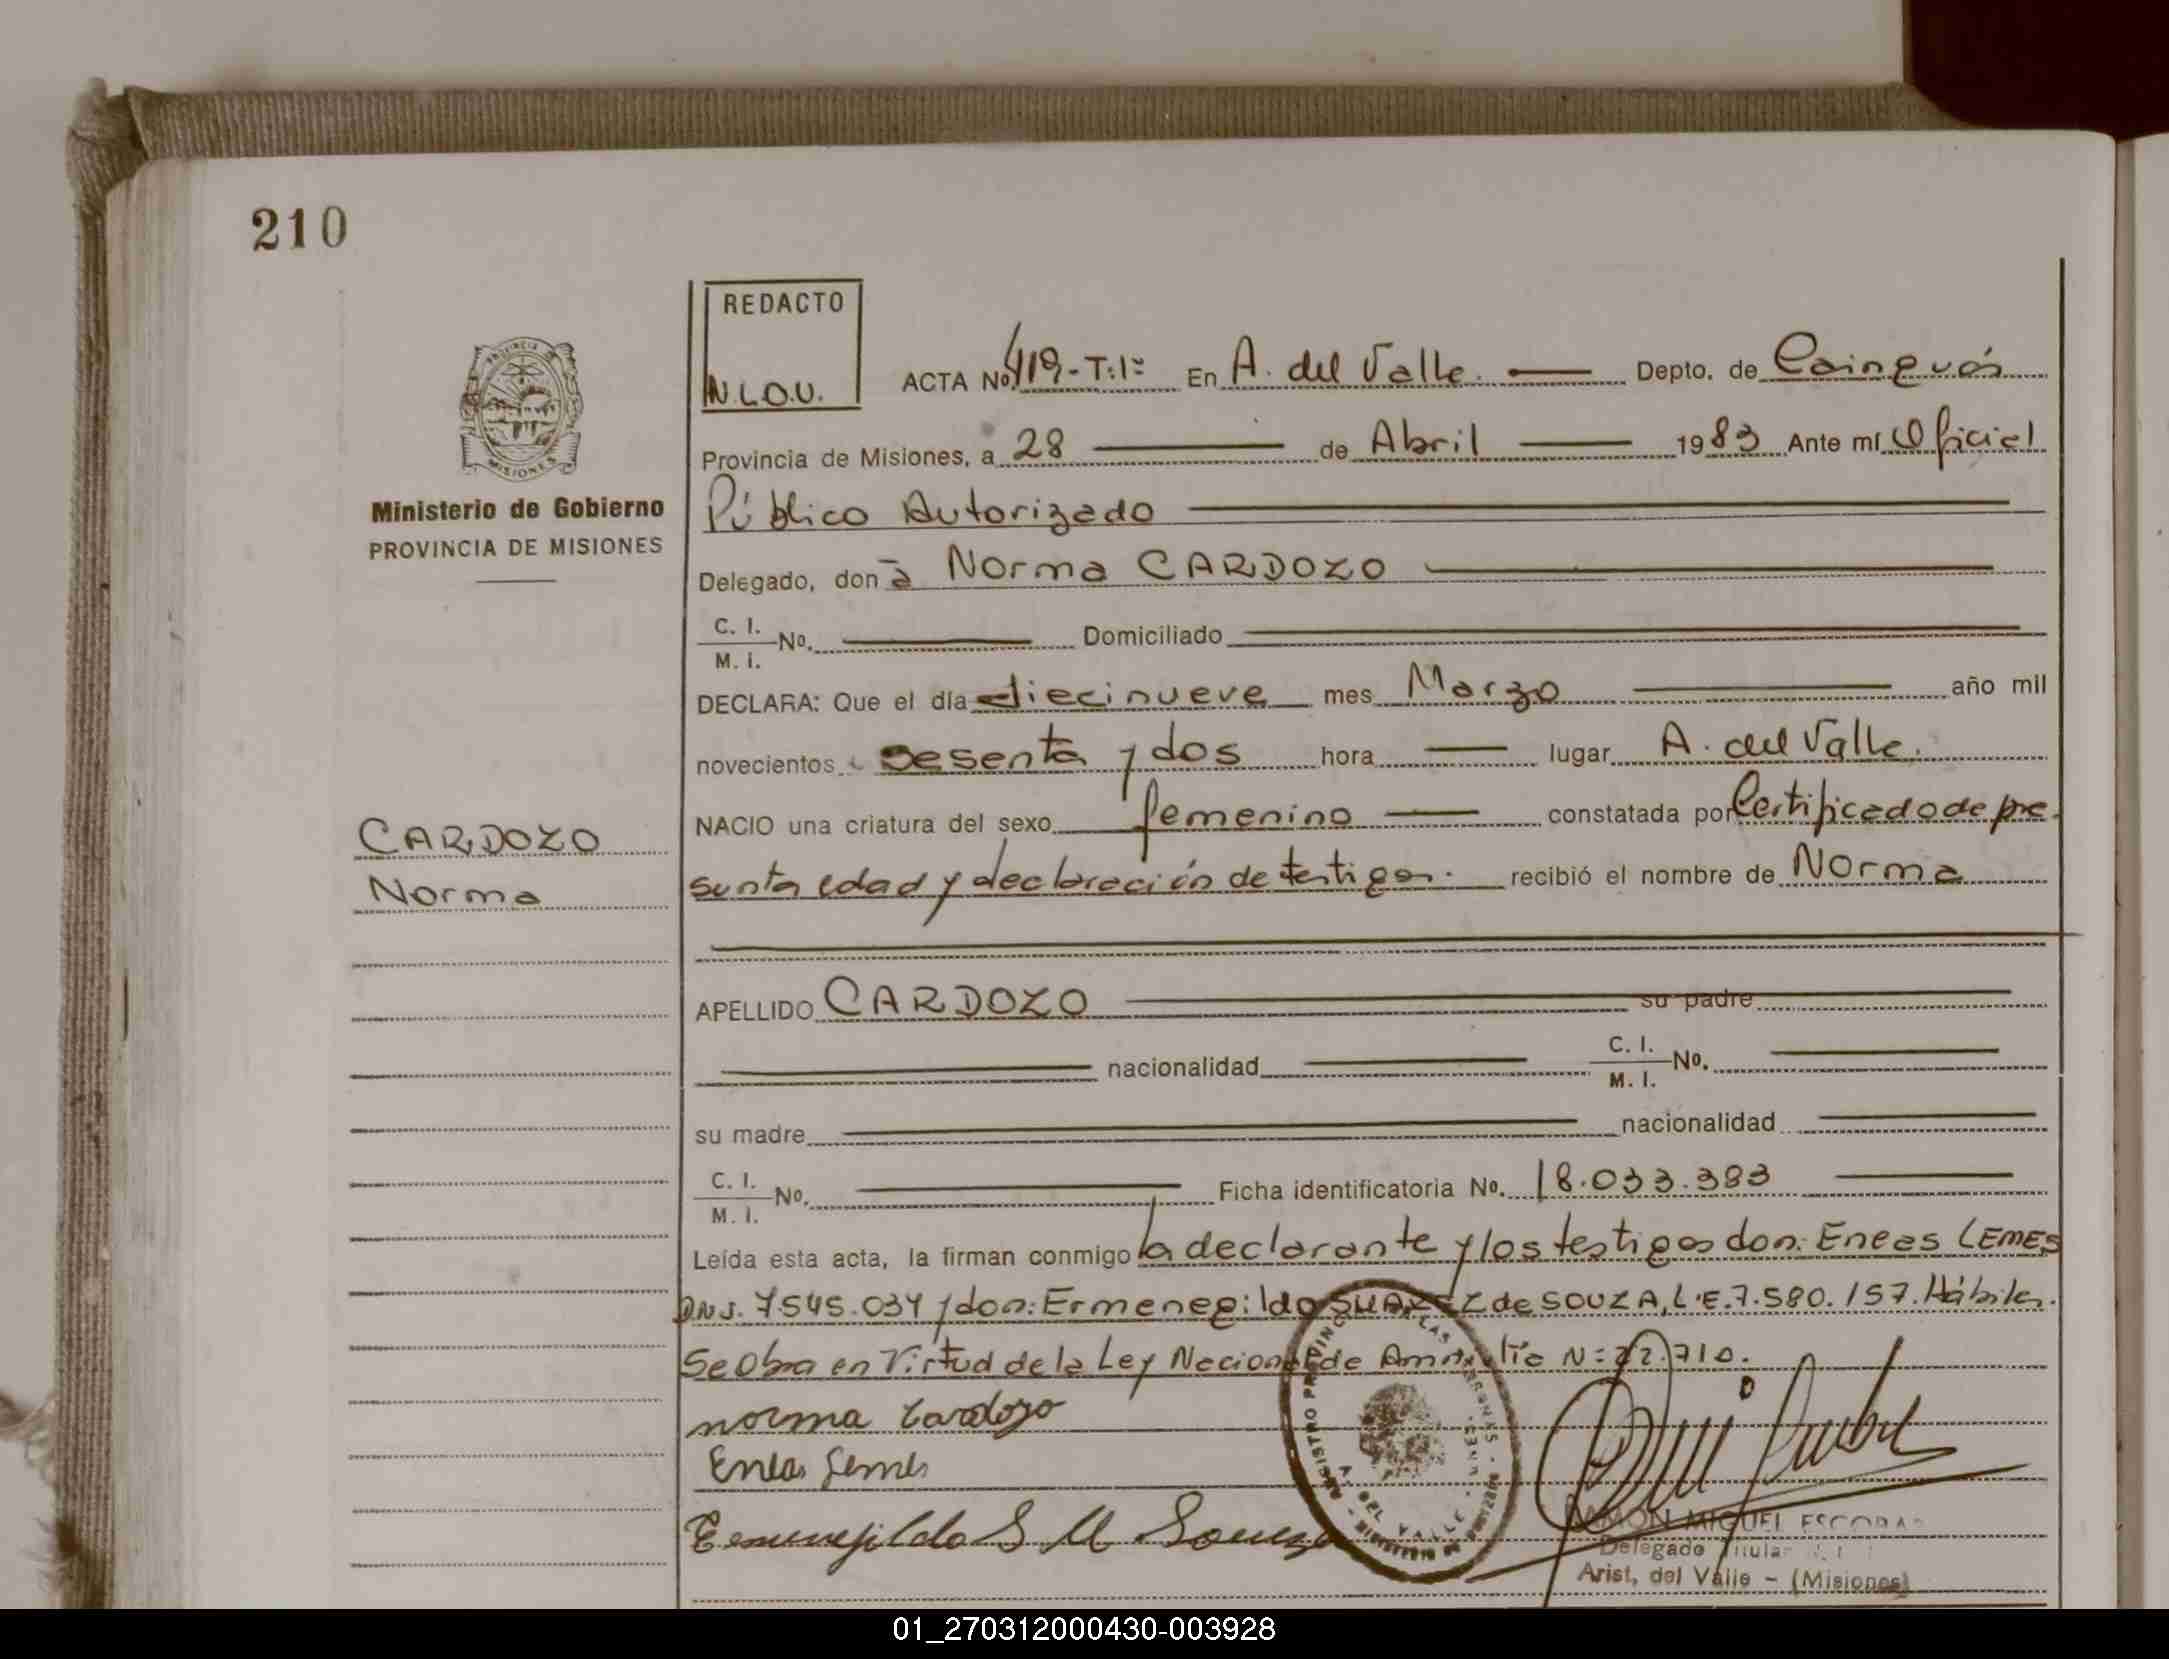 210
REDACTO
N.L.O.U.
ACTA No. 419-T:1º En A. del Valle. Depto. de Cainguás
PROVINCIA DE
MISIONES
Provincia de Misiones, a 28 de Abril 1983 Ante mí Oficial
Ministerio de Gobierno
PROVINCIA DE MISIONES
Público Autorizado
Delegado, don a Norma CARDOZO
C. I.
M. I. No. Domiciliado
DECLARA: Que el día diecinueve mes Marzo año mil
novecientos sesenta y dos hora lugar A. del Valle.
CARDOZO
Norma
NACIO una criatura del sexo femenino constatada por Certificado de pre-
sunta edad y declaración de testigos. recibió el nombre de Norma
APELLIDO CARDOZO su padre
nacionalidad C. I.
M. I. No.
su madre nacionalidad
C. I.
M. I. No. Ficha identificatoria No. 18.033.383
Leída esta acta, la firman conmigo la declarante y los testigos don: Eneas LEMES
D.N.I. 7.545.034 y don: Ermenegildo SUAREZ de SOUZA, L.E. 7.580.157. Hábiles.
Se Obra en Virtud de la Ley Nacional de Amnistía N= 22.710.
norma Cardozo
Eneas Lemes
Ermenejildo S Souza
RAMON MIGUEL ESCOBAR
Delegado Titular
Arist, del Valle - (Misiones)
01_270312000430-003928